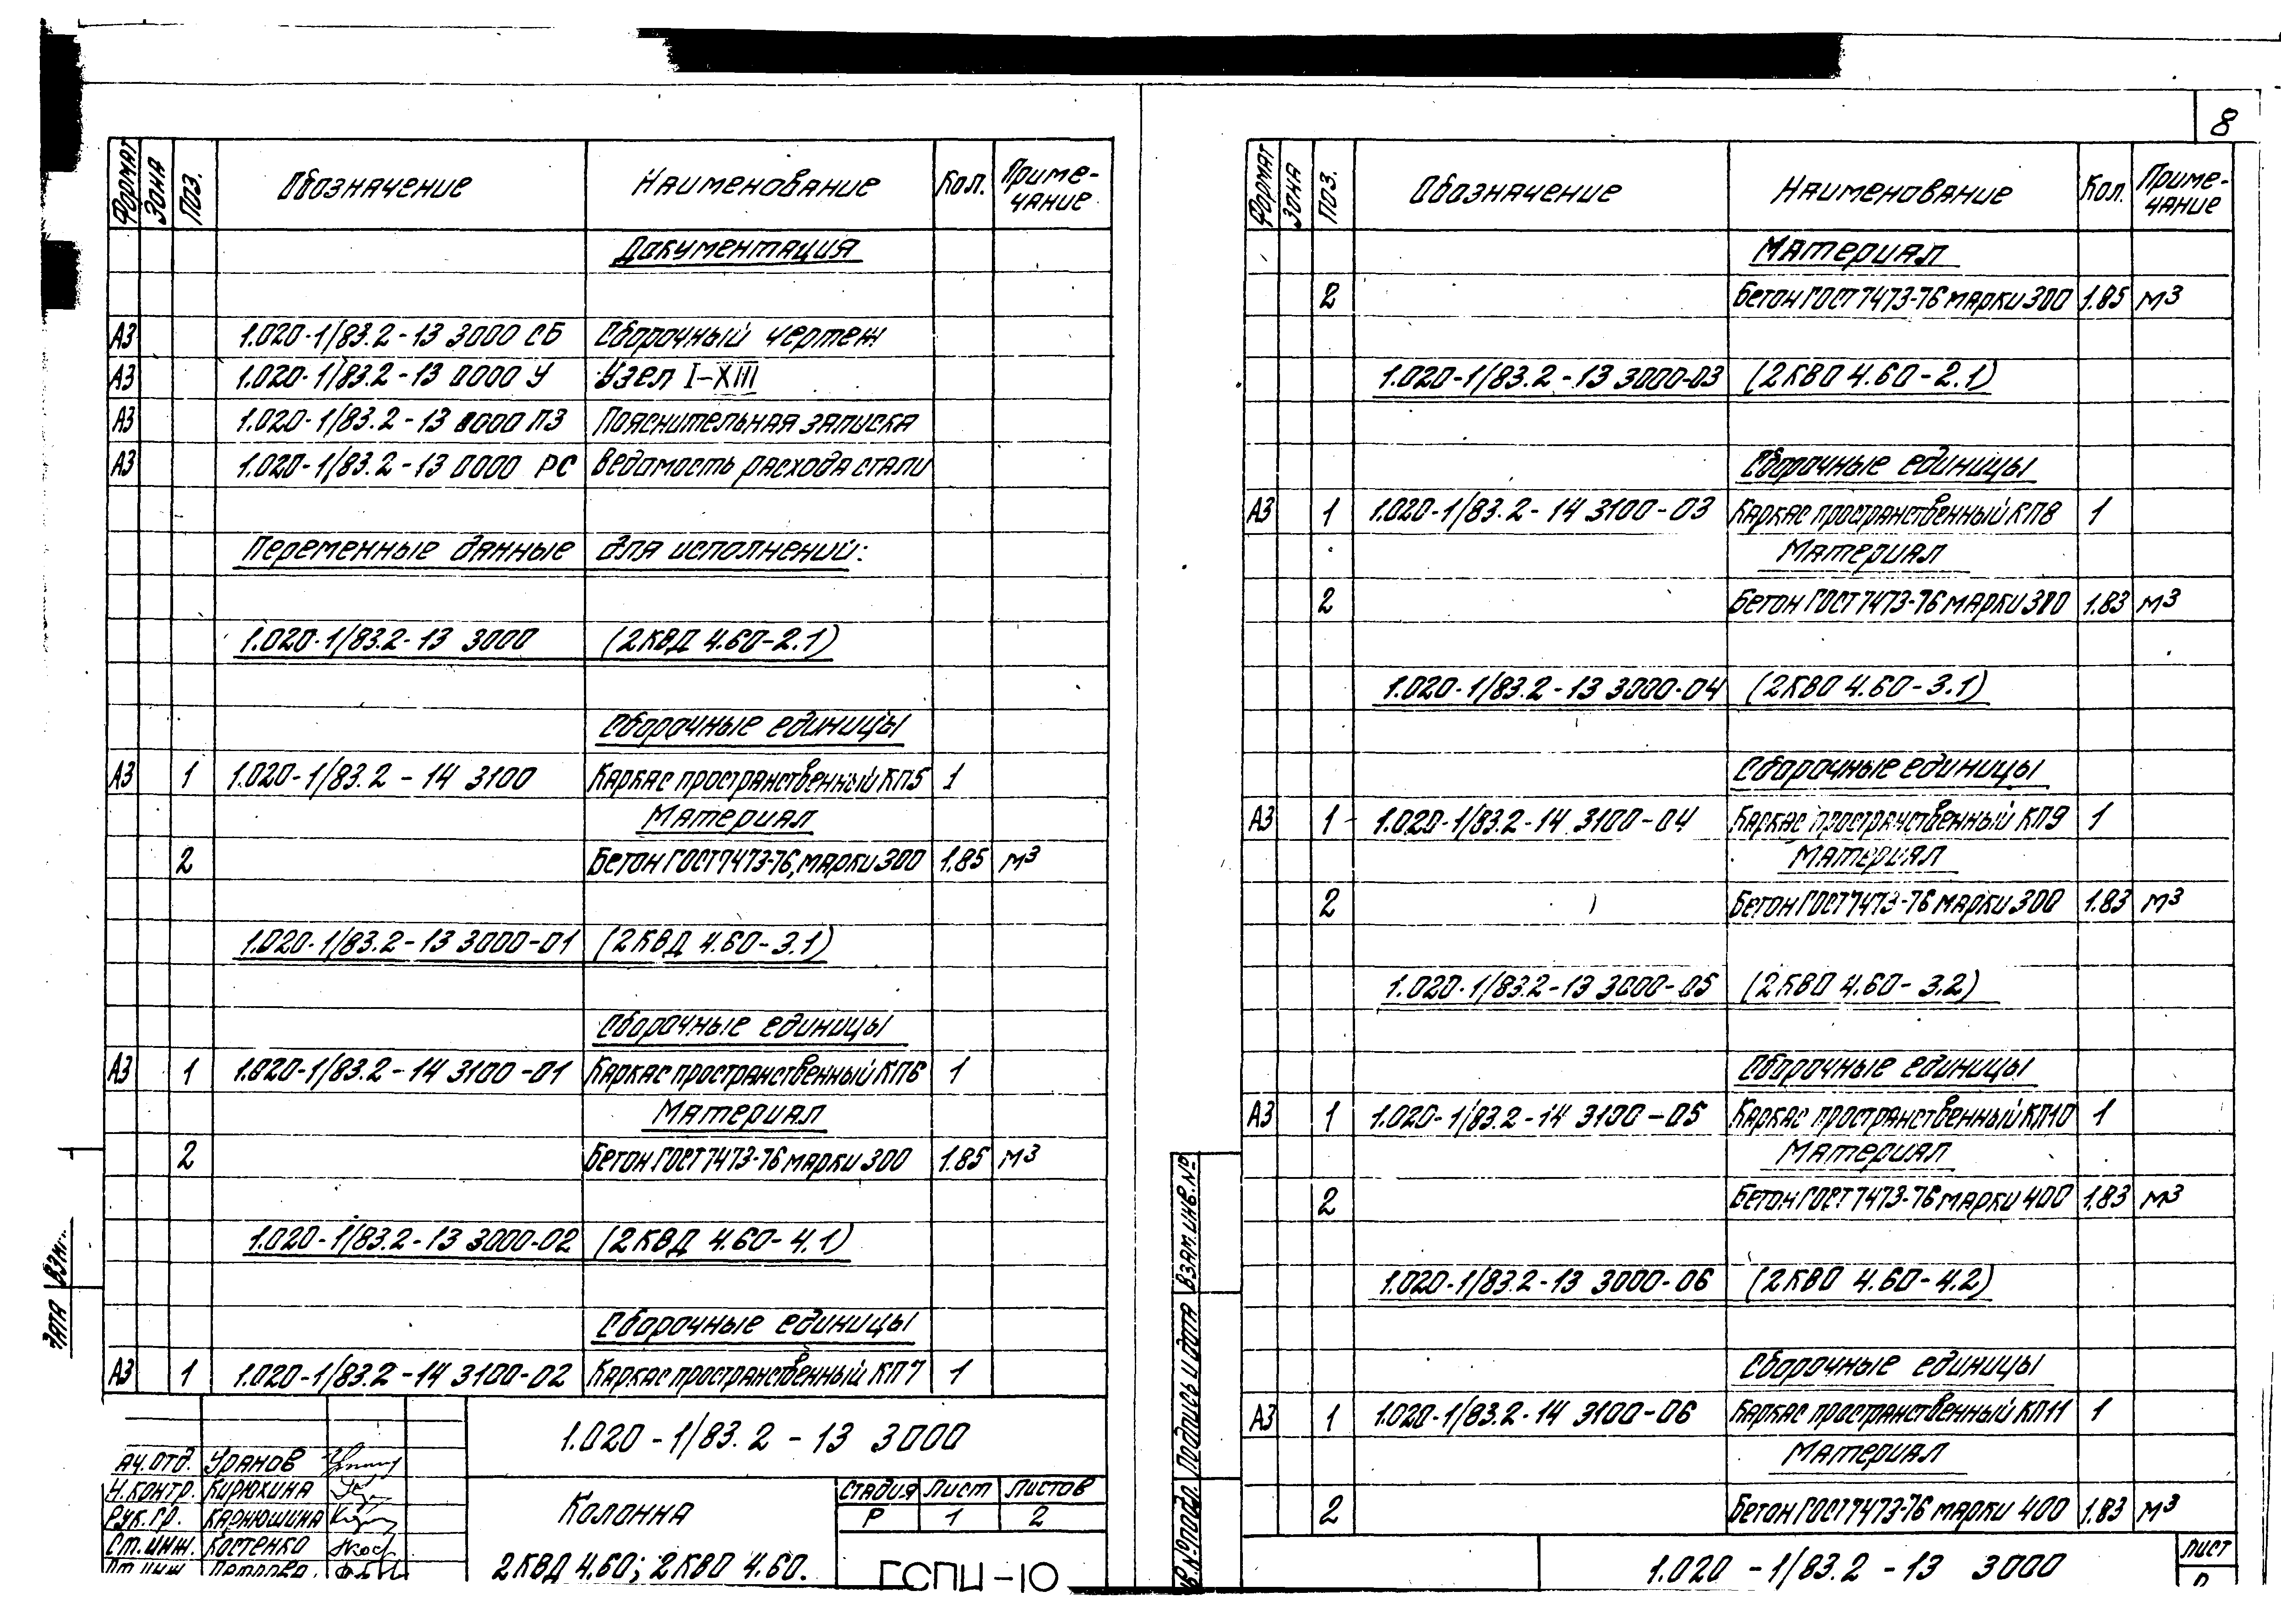 8
Формат Зона Поз. Обозначение Наименование Кол. Приме-
чание
Документация
А3 1.020-1/83.2-13 3000 СБ Сборочный чертеж
А3 1.020-1/83.2-13 0000 У Узел I-XIII
А3 1.020-1/83.2-13 0000 ПЗ Пояснительная записка
А3 1.020-1/83.2-13 0000 РС Ведомость расхода стали
Переменные данные для исполнений:
1.020-1/83.2-13 3000 (2КВД 4.60-2.1)
Сборочные единицы
А3 1 1.020-1/83.2-14 3100 Каркас пространственный КП5 1
Материал
2 Бетон ГОСТ 7473-76, марки 300 1.85 м3
1.020-1/83.2-13 3000-01 (2КВД 4.60-3.1)
Сборочные единицы
А3 1 1.020-1/83.2-14 3100-01 Каркас пространственный КП6 1
Материал
2 Бетон ГОСТ 7473-76 марки 300 1.85 м3
1.020-1/83.2-13 3000-02 (2КВД 4.60-4.1)
Сборочные единицы
А3 1 1.020-1/83.2-14 3100-02 Каркас пространственный КП7 1
1.020-1/83.2-13 3000
ач.отд. Уранов
Н.контр. Кирюхина
Рук.гр. Карнюшина
Ст.инж. Костенко
Колонна
2КВД 4.60; 2КВО 4.60.
Стадия Лист Листов
Р 1 2
ГСПИ-10
Формат Зона Поз. Обозначение Наименование Кол. Приме-
чание
Материал
2 Бетон ГОСТ 7473-76 марки 300 1.85 м3
1.020-1/83.2-13 3000-03 (2КВО 4.60-2.1)
Сборочные единицы
А3 1 1.020-1/83.2-14 3100-03 Каркас пространственный КП8 1
Материал
2 Бетон ГОСТ 7473-76 марки 300 1.83 м3
1.020-1/83.2-13 3000-04 (2КВО 4.60-3.1)
Сборочные единицы
А3 1 1.020-1/83.2-14 3100-04 Каркас пространственный КП9 1
Материал
2 Бетон ГОСТ 7473-76 марки 300 1.83 м3
1.020-1/83.2-13 3000-05 (2КВО 4.60-3.2)
Сборочные единицы
А3 1 1.020-1/83.2-14 3100-05 Каркас пространственный КП10 1
Материал
2 Бетон ГОСТ 7473-76 марки 400 1.83 м3
1.020-1/83.2-13 3000-06 (2КВО 4.60-4.2)
Сборочные единицы
А3 1 1.020-1/83.2-14 3100-06 Каркас пространственный КП11 1
Материал
2 Бетон ГОСТ 7473-76 марки 400 1.83 м3
Взам.инв.№
Подпись и дата
1.020-1/83.2-13 3000
Лист